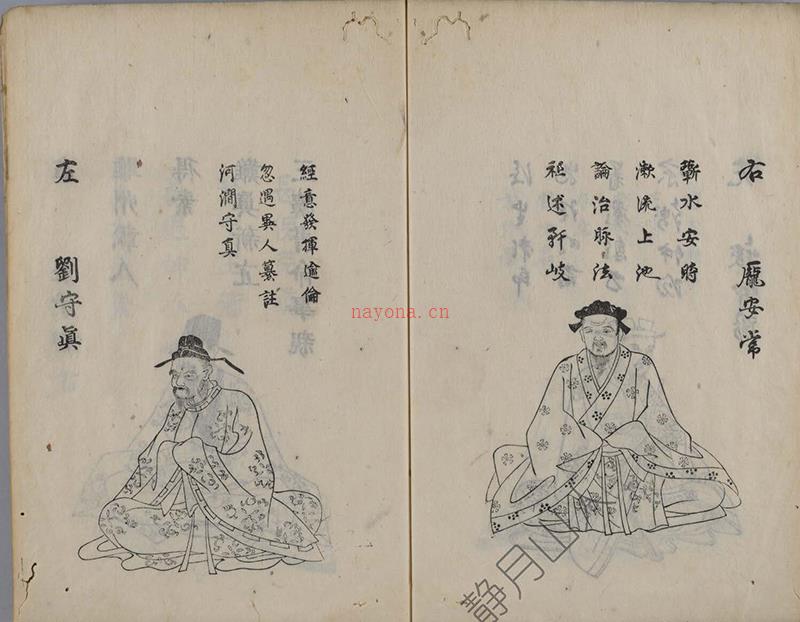 右　龐安常
蘄水安時
漱流上池
論治脉法
祖述軒岐
左　劉守眞
經意發揮逾倫
忽遇異人纂註
河澗守真
nayona.cn
静月山